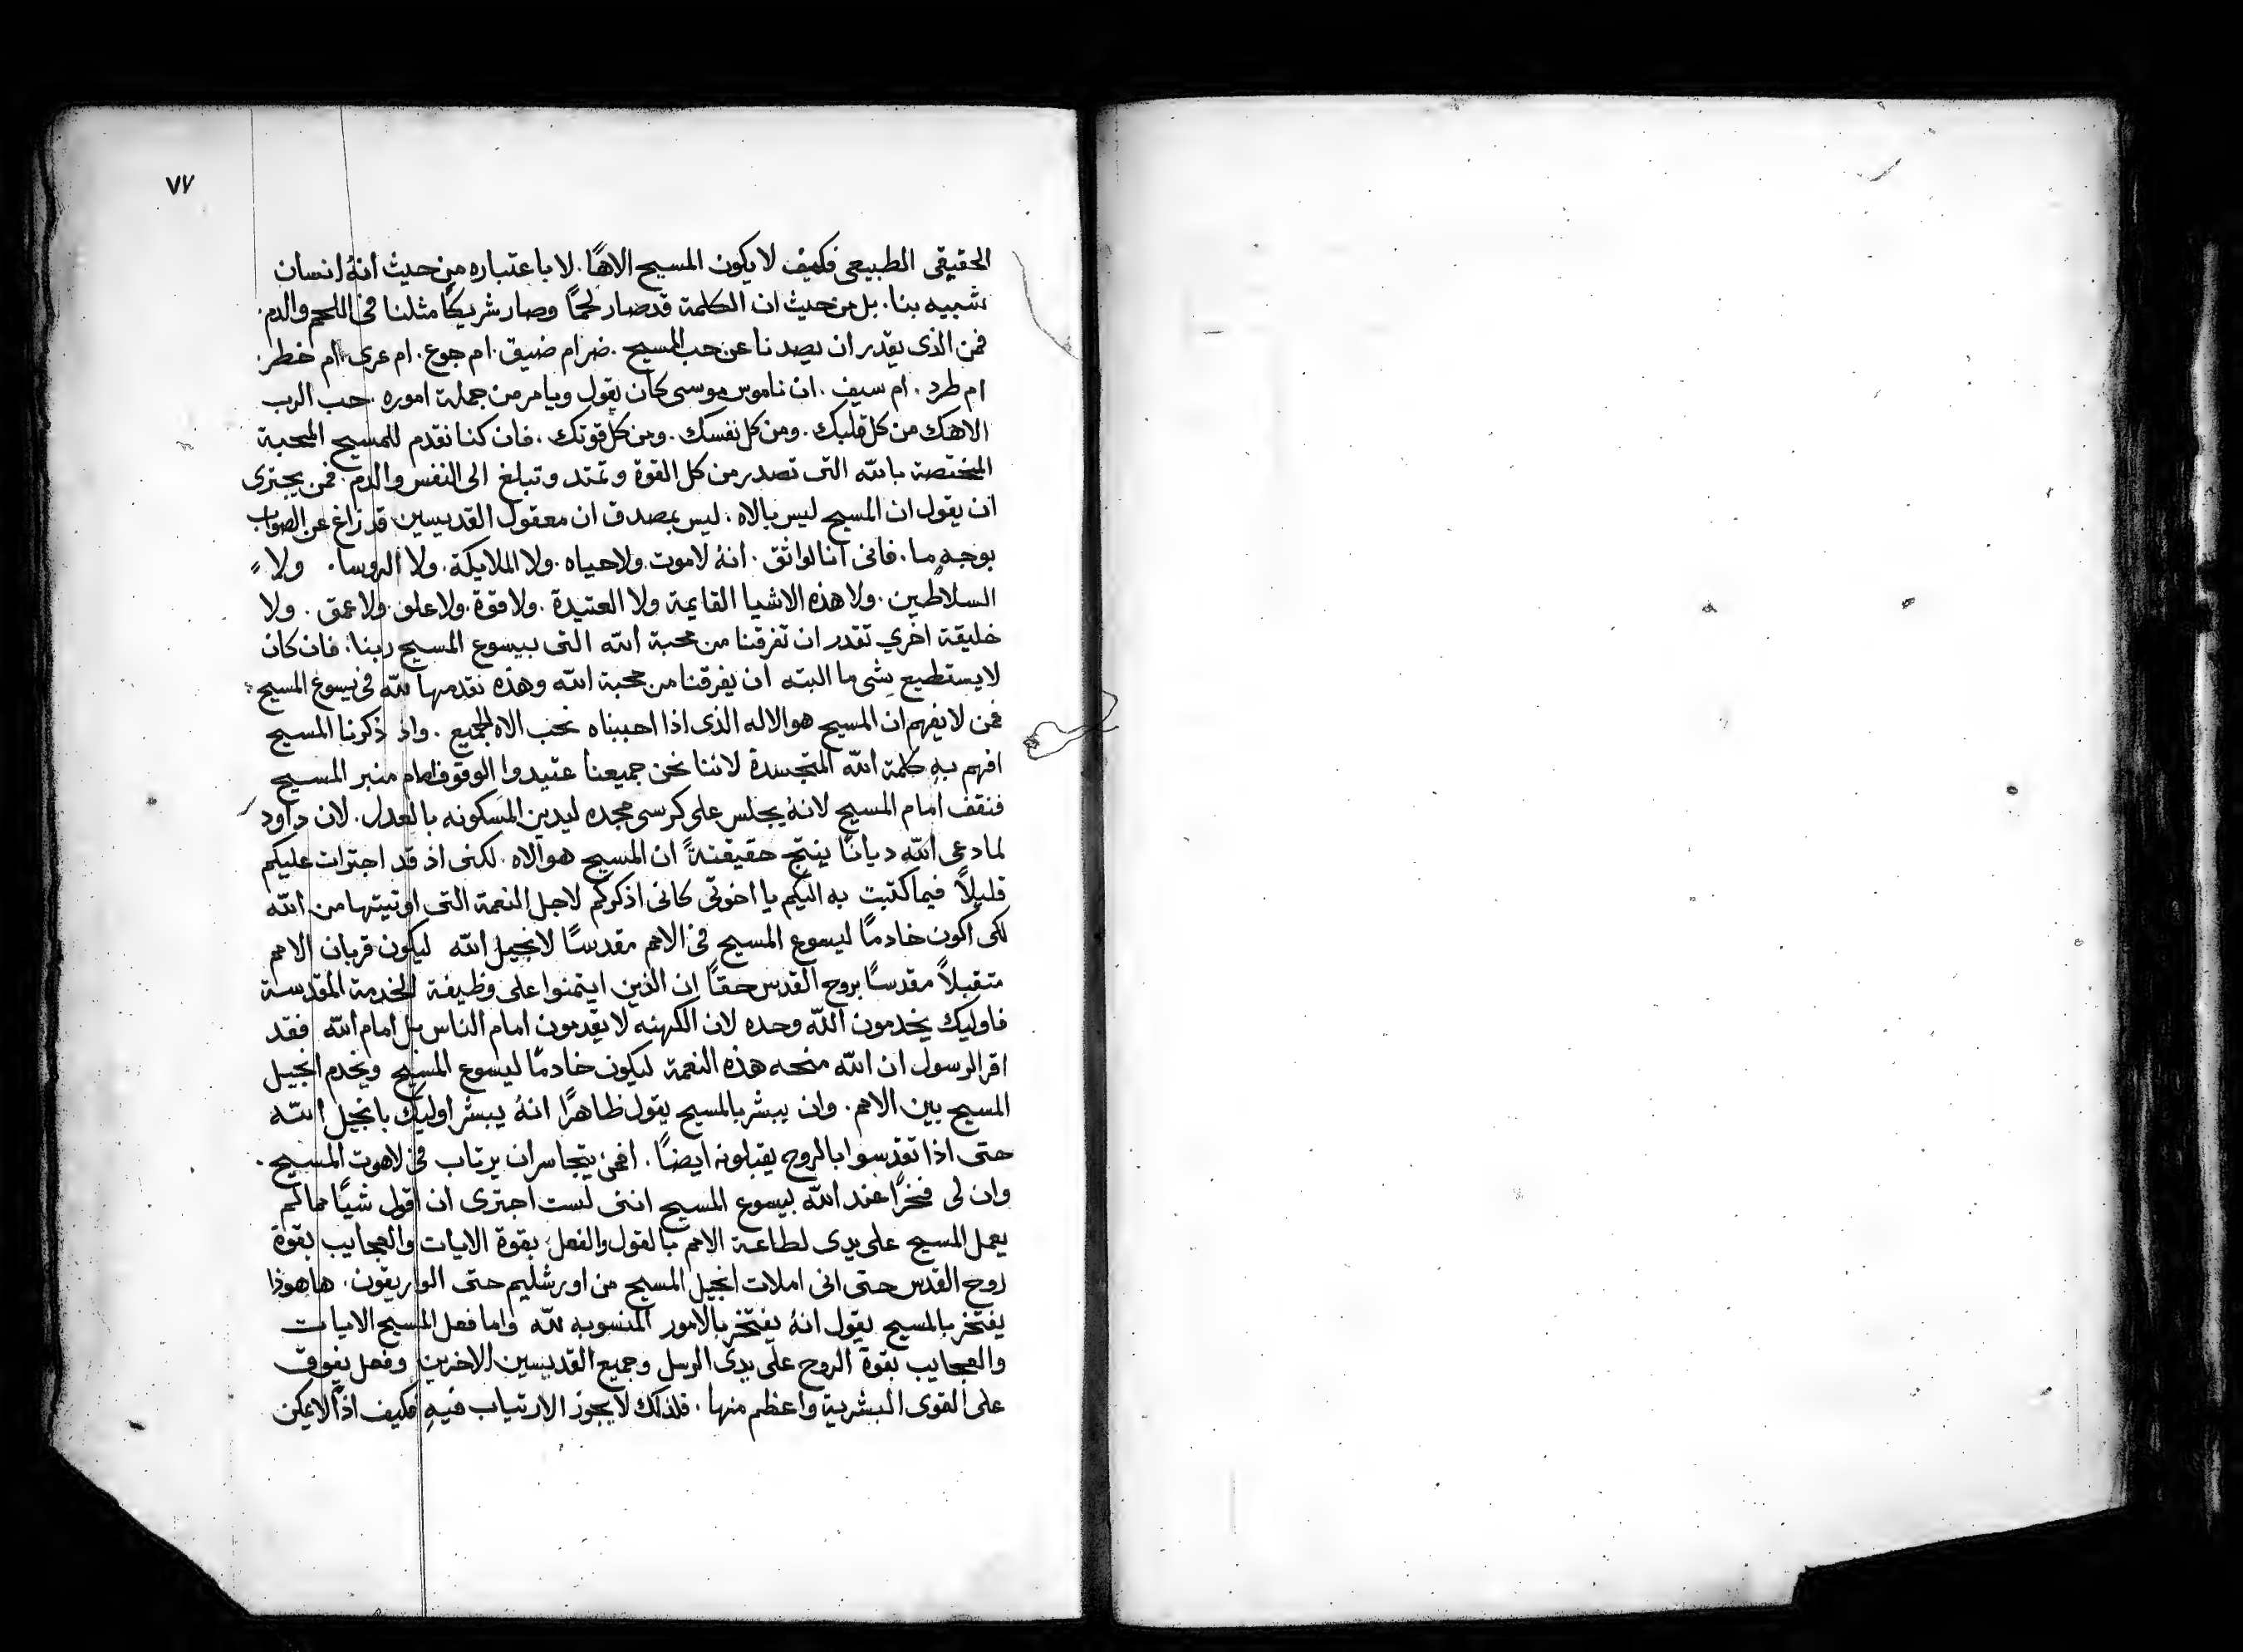 ٧٧
الحقيقى الطبيعى فكيف لا يكون المسيح الاهًا. لا باعتباره من حيث انهُ انسان
شبيه بنا. بل من حيث ان الكلمة قد صار لحمًا وصار شريكًا مثلنا فى اللحم والدم.
فمن الذى يقدر ان يصدنا عن حب المسيح. ضر ام ضيق. ام جوع. ام عرى. ام خطر.
ام طرد. ام سيف. ان ناموس موسى كان يقول ويامر من جملة اموره. حب الرب
الاهك من كل قلبك. ومن كل نفسك. ومن كل قوتك. فان كنا نقدم للمسيح المحبة
المختصة بالله التى تصدر من كل القوة وتمتد وتبلغ الى النفس والدم. فمن يجترى
ان يقول ان المسيح ليس بالاه. ليس بمصدق ان معقول القديسين قد زاغ عن الصواب
بوجهٍ ما. فانى انا لواثق. انهُ لا موت. ولا حياه. ولا الملايكة. ولا الروسا. ولا
السلاطين. ولا هذه الاشيا القايمة ولا العتيدة. ولا قوة. ولا علو. ولا عمق. ولا
خليقة اخري تقدر ان تفرقنا من محبة الله التى بيسوع المسيح ربنا. فان كان
لا يستطيع شى ما البته ان يفرقنا من محبة الله وهذه نقدمها لله فى يسوع المسيح.
فمن لا يفهم ان المسيح هو الاله الذى اذا احببناه نحب الاه الجميع. واذ ذكرنا المسيح
افهم بهِ كلمة الله المتجسدة لاننا نحن جميعنا عتيدوا الوقوف امام منبر المسيح
فنقف امام المسيح لانهُ يجلس على كرسى مجده ليدين المسكونه بالعدل. لان داود
لما دعى الله ديانًا ينتج حقيقتةً ان المسيح هو الاه. لكنى اذ قد اجترات عليكم
قليلاً فيما كتبت به اليكم يا اخوتى كانى اذكركم لاجل النعمة التى اوتيتها من الله
لكى اكون خادمًا ليسوع المسيح فى الامم مقدسًا لانجيل الله ليكون قربان الامم
متقبلاً مقدسًا بروح القدس حقًا ان الذين ايتمنوا على وظيفة الخدمة المقدسة
فاوليك يخدمون الله وحده لان الكهنه لا يقدمون امام الناس بل امام الله فقد
اقر الرسول ان الله منحه هذه النعمة ليكون خادمًا ليسوع المسيح ويخدم انجيل
المسيح بين الامم. وان يبشر بالمسيح يقول ظاهرًا انهُ يبشر اوليك بانجيل الله
حتى اذا تقدسوا بالروح يقبلونه ايضًا. افمن يتجاسر ان يرتاب فى لاهوت المسيح.
وان لى فخرًا عند الله بيسوع المسيح اننى لست اجترى ان اقول شيًا مما لم
يعمل المسيح على يدى لطاعة الامم بالقول والفعل بقوة الايات والعجايب بقوة
روح القدس حتى انى املات انجيل المسيح من اورشليم حتى الواريقون. ها هوذا
يفتخر بالمسيح يقول انهُ يفتخر بالامور المنسوبه لله واما فعل المسيح الايات
والعجايب بقوة الروح على يدى الرسل وجميع القديسين الاخرين وفعل يفوق
على القوى البشرية واعظم منها. فلذلك لا يجوز الارتياب فيهِ فكيف اذًا لا يمكن